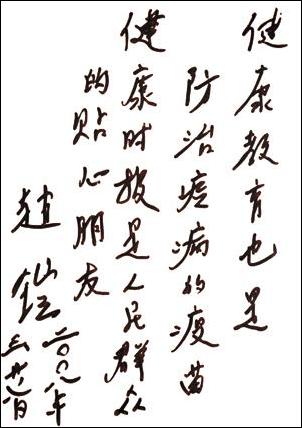 健康教育也是
防治疾病的疫苗
健康时报是人民群众
的贴心朋友
赵铠
二〇〇八年